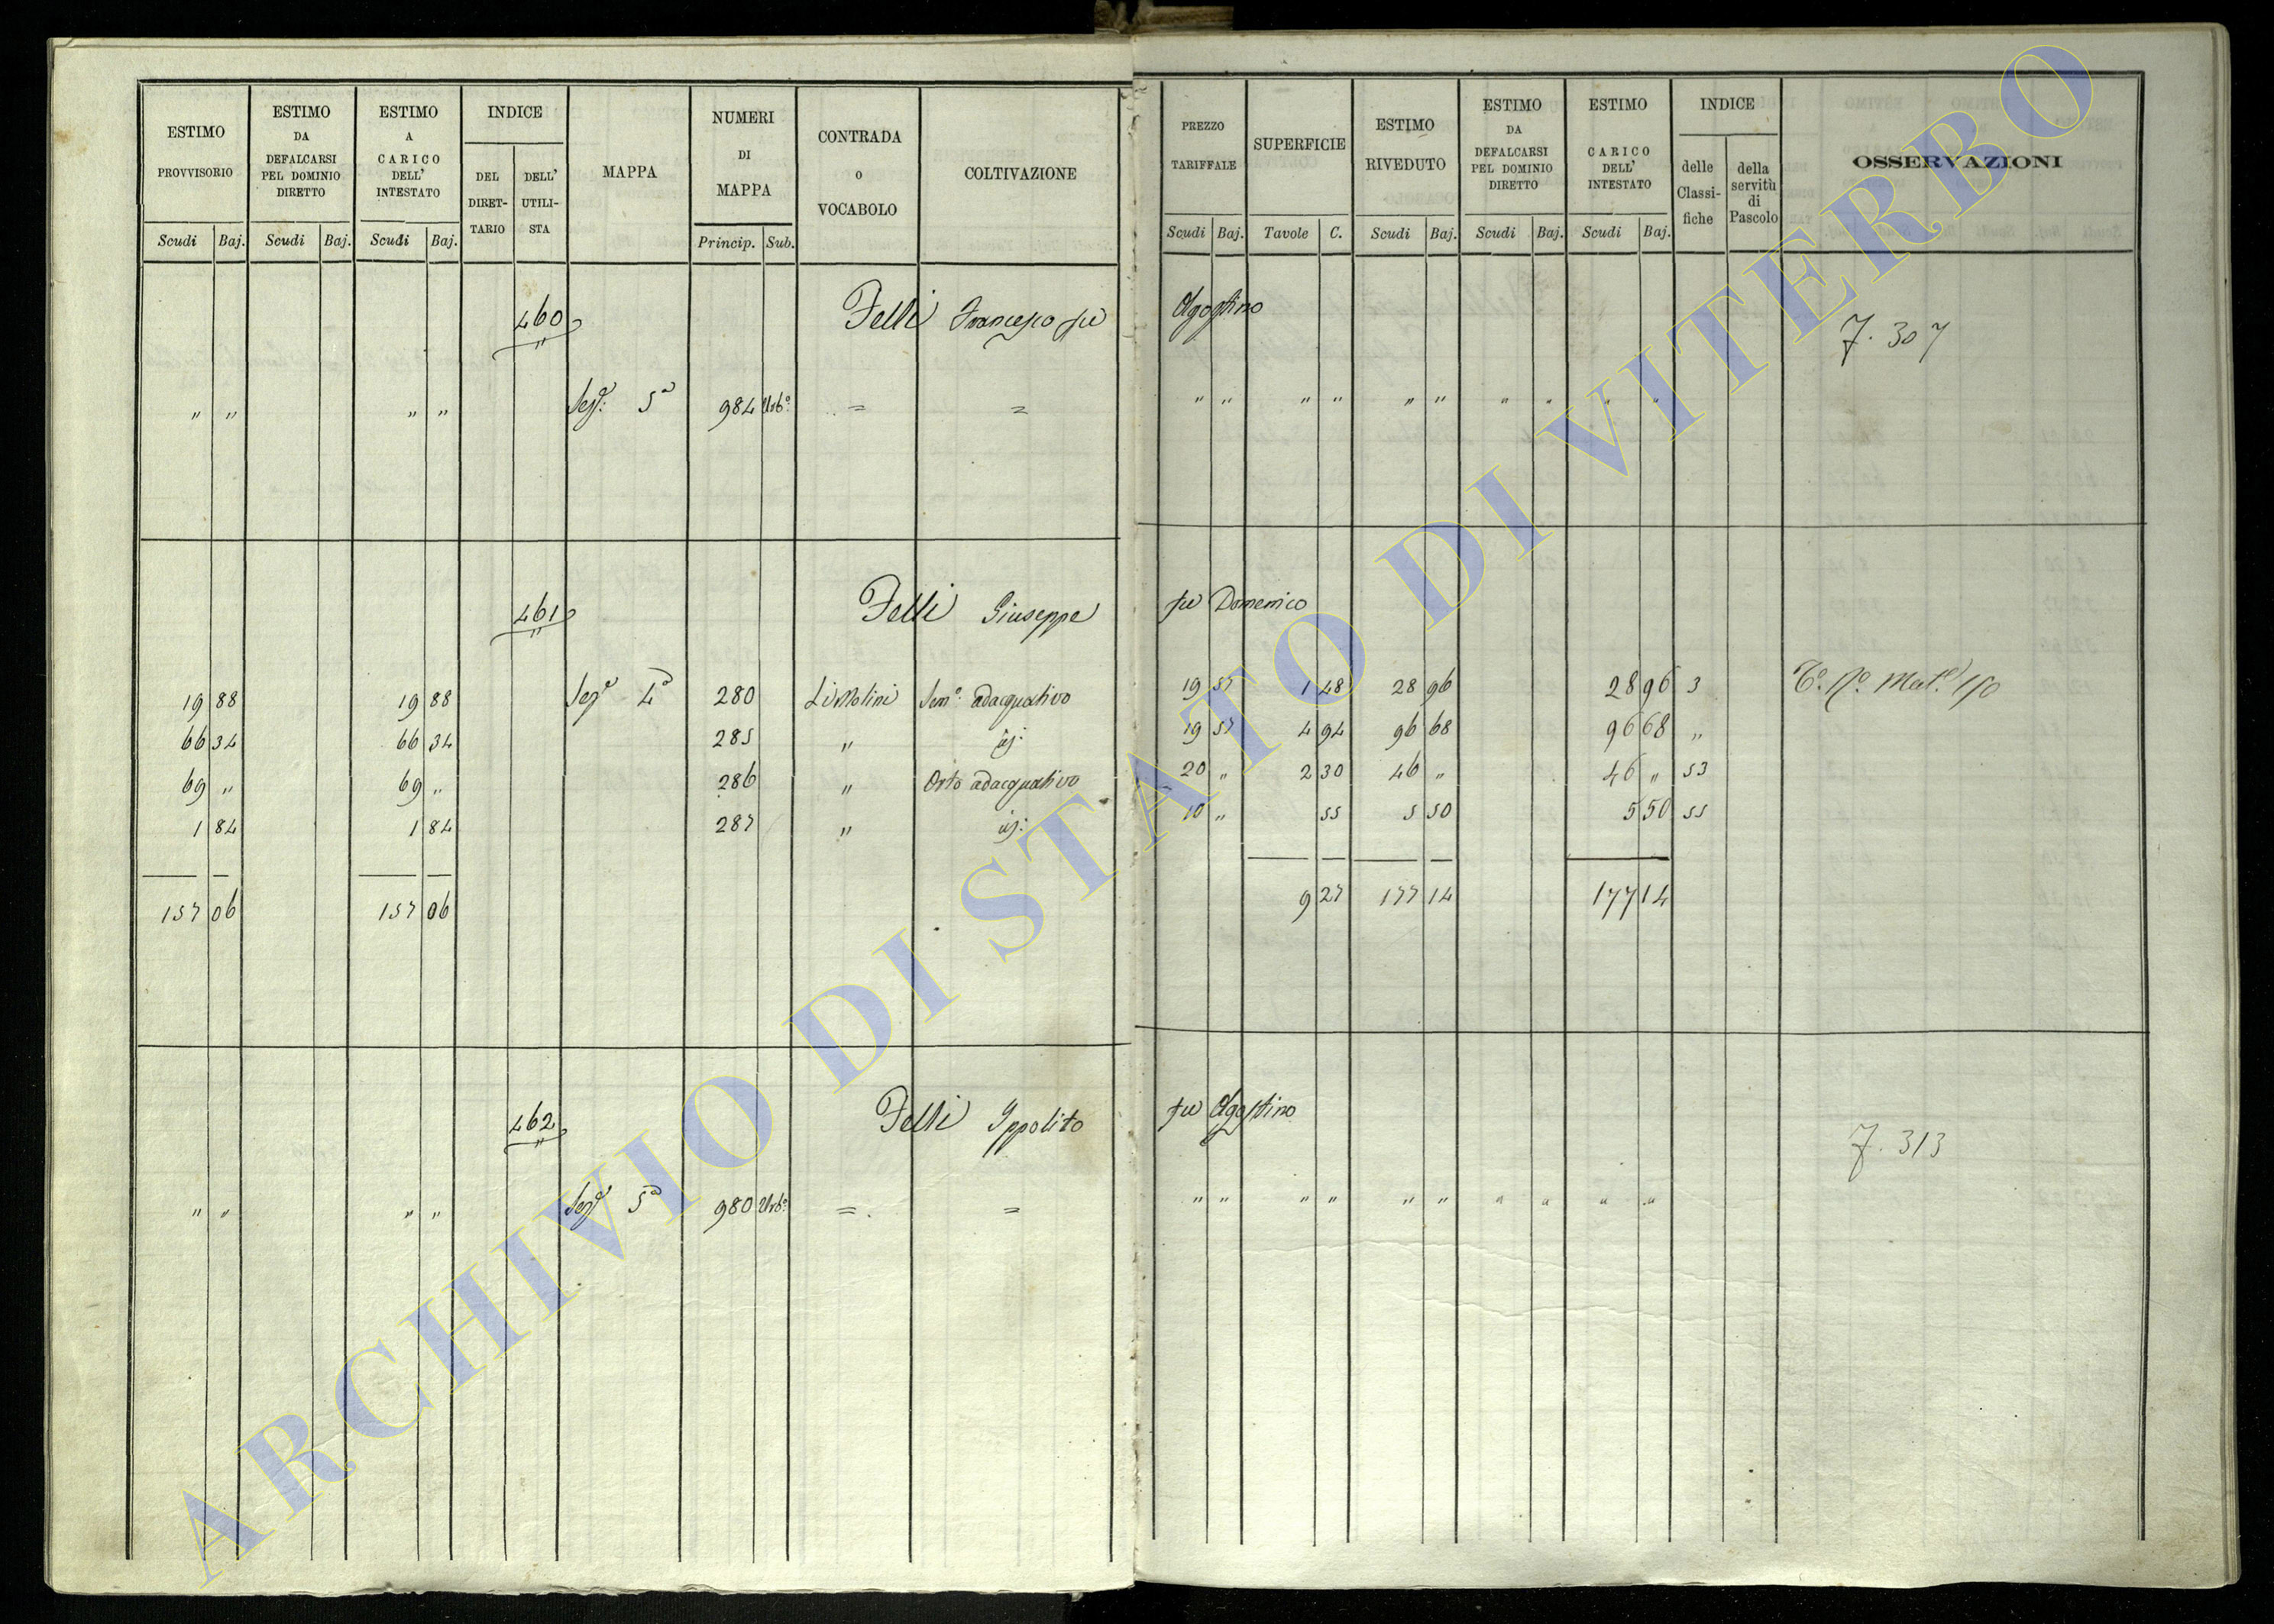 ESTIMO PROVVISORIO
ESTIMO DA DEFALCARSI PEL DOMINIO DIRETTO
ESTIMO A CARICO DELL' INTESTATO
INDICE
DEL DIRET-TARIO
DELL' UTILI-STA
MAPPA
NUMERI DI MAPPA
CONTRADA O VOCABOLO
COLTIVAZIONE
PREZZO TARIFFALE
SUPERFICIE
ESTIMO RIVEDUTO
ESTIMO DA DEFALCARSI PEL DOMINIO DIRETTO
ESTIMO A CARICO DELL' INTESTATO
INDICE
delle Classi-fiche
della servitù di Pascolo
OSSERVAZIONI
Scudi Baj. Scudi Baj. Scudi Baj. Princip. Sub. Scudi Baj. Tavole C. Scudi Baj. Scudi Baj. Scudi Baj.
460 Felli Francesco fu Agostino 7. 307
" " " " Sezᵉ: 5ᵃ 984 Urbᵒ: = = " " " " " " " " " "
461 Felli Giuseppe fu Domenico
19 88 19 88 Sezᵉ 4ᵃ 280 Li Molini Semᵒ: adacquativo 19 57 1 48 28 96 28 96 3
66 34 66 34 285 " id: 19 57 4 94 96 68 96 68 "
69 " 69 " 286 " Orto adacquativo 20 " 2 30 46 " 46 " 53
1 84 1 84 287 " id: 10 " 55 5 50 5 50 55
157 06 157 06 9 27 177 14 177 14
462 Felli Ippolito fu Agostino 7. 313
" " " " Sezᵉ 5ᵃ 980 Urbᵒ: = = " " " " " " " " " "
ARCHIVIO DI STATO DI VITERBO